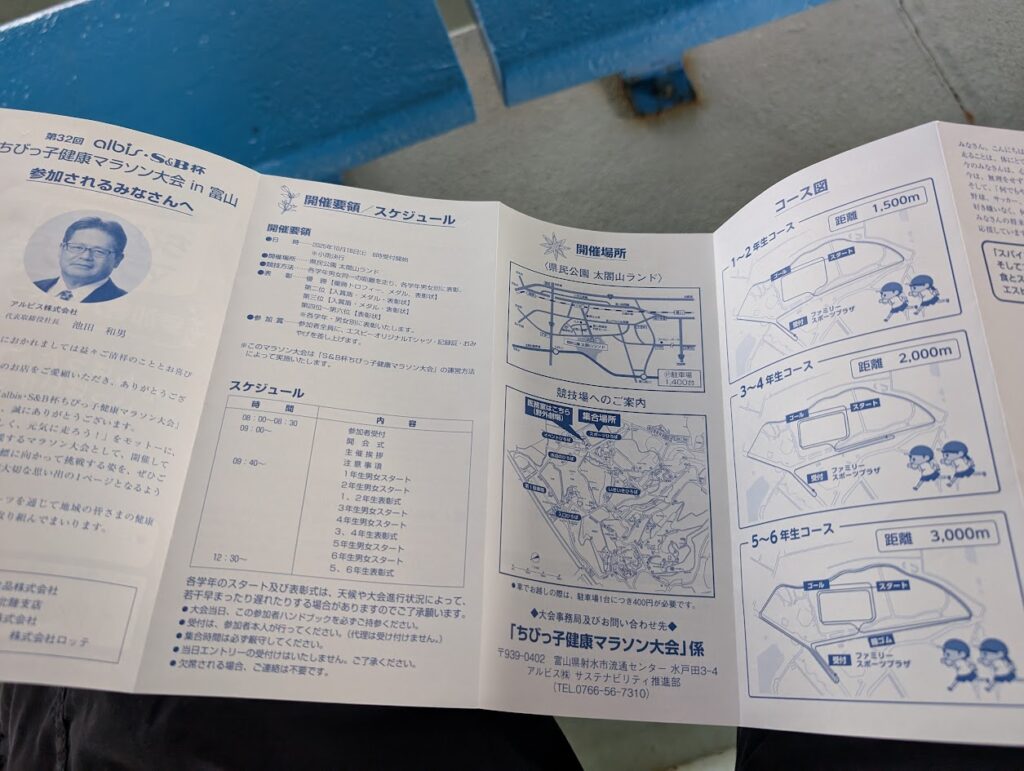 第32回 albis・S&B杯
ちびっ子健康マラソン大会 in 富山
参加されるみなさんへ
アルビス株式会社
代表取締役社長 池田 和男
におかれましては益々ご清祥のこととお喜び
のお店をご愛顧いただき、ありがとうござ
albis・S&B杯ちびっ子健康マラソン大会」
、誠にありがとうございます。
しく、元気に走ろう！」をモットーに、
するマラソン大会として、開催して
標に向かって挑戦する姿を、ぜひご
大切な思い出の1ページとなるよう
ーツを通じて地域の皆さまの健康
取り組んでまいります。
食品株式会社
北陸支店
株式会社
株式会社ロッテ
開催要領／スケジュール
開催要領
●日 時……2025年10月18日(土) 8時受付開始
※小雨決行
●開催場所……県民公園 太閤山ランド
●競技方法……各学年男女同一の距離を走り、各学年男女別に表彰。
●表 彰……優 勝【優勝トロフィー、メダル、表彰状】
第二位【入賞盾・メダル・表彰状】
第三位【入賞盾・メダル・表彰状】
第四位～第六位【表彰状】
※各学年・男女別に表彰いたします。
●参 加 賞……参加者全員に、エスビーオリジナルTシャツ・記録証・おみ
やげを差し上げます。
※このマラソン大会は「S&B杯ちびっ子健康マラソン大会」の運営方法
によって実施いたします。
スケジュール
時 間 内 容
08：00～08：30 参加者受付
09：00～ 開 会 式
主 催 挨 拶
注 意 事 項
09：40～ 1年生男女スタート
2年生男女スタート
1、2年生表彰式
3年生男女スタート
4年生男女スタート
3、4年生表彰式
5年生男女スタート
6年生男女スタート
12：30～ 5、6年生表彰式
各学年のスタート及び表彰式は、天候や大会進行状況によって、
若干早まったり遅れたりする場合がありますのでご了承願います。
●大会当日、この参加者ハンドブックを必ずご持参ください。
●受付は、参加者本人が行ってください。（代理は受け付けません。）
●集合時間は必ず厳守してください。
●当日エントリーの受付はいたしません。ご了承ください。
●欠席される場合、ご連絡は不要です。
開催場所
〈県民公園 太閤山ランド〉
Ⓟ駐車場
1,400台
競技場へのご案内
医務室はこちら
（野外劇場）
集合場所
●車でお越しの際は、駐車場1台につき400円が必要です。
◆大会事務局及びお問い合わせ先◆
「ちびっ子健康マラソン大会」係
〒939-0402 富山県射水市流通センター 水戸田3-4
アルビス㈱ サステナビリティ推進部
（TEL.0766-56-7310）
コース図
1～2年生コース
距離 1,500m
ゴール
スタート
受付
ファミリー
スポーツプラザ
3～4年生コース
距離 2,000m
ゴール
スタート
受付
ファミリー
スポーツプラザ
5～6年生コース
距離 3,000m
ゴール
スタート
輪ゴム
受付
ファミリー
スポーツプラザ
みなさん、こんにちは
走ることは、体にと
今のみなさんは、心
今は、無理をせず
そして、「何でも
野球、サッカー、
好き嫌いなく、
みなさんの
応援しています
「スパイ
そして
食とス
エスビ